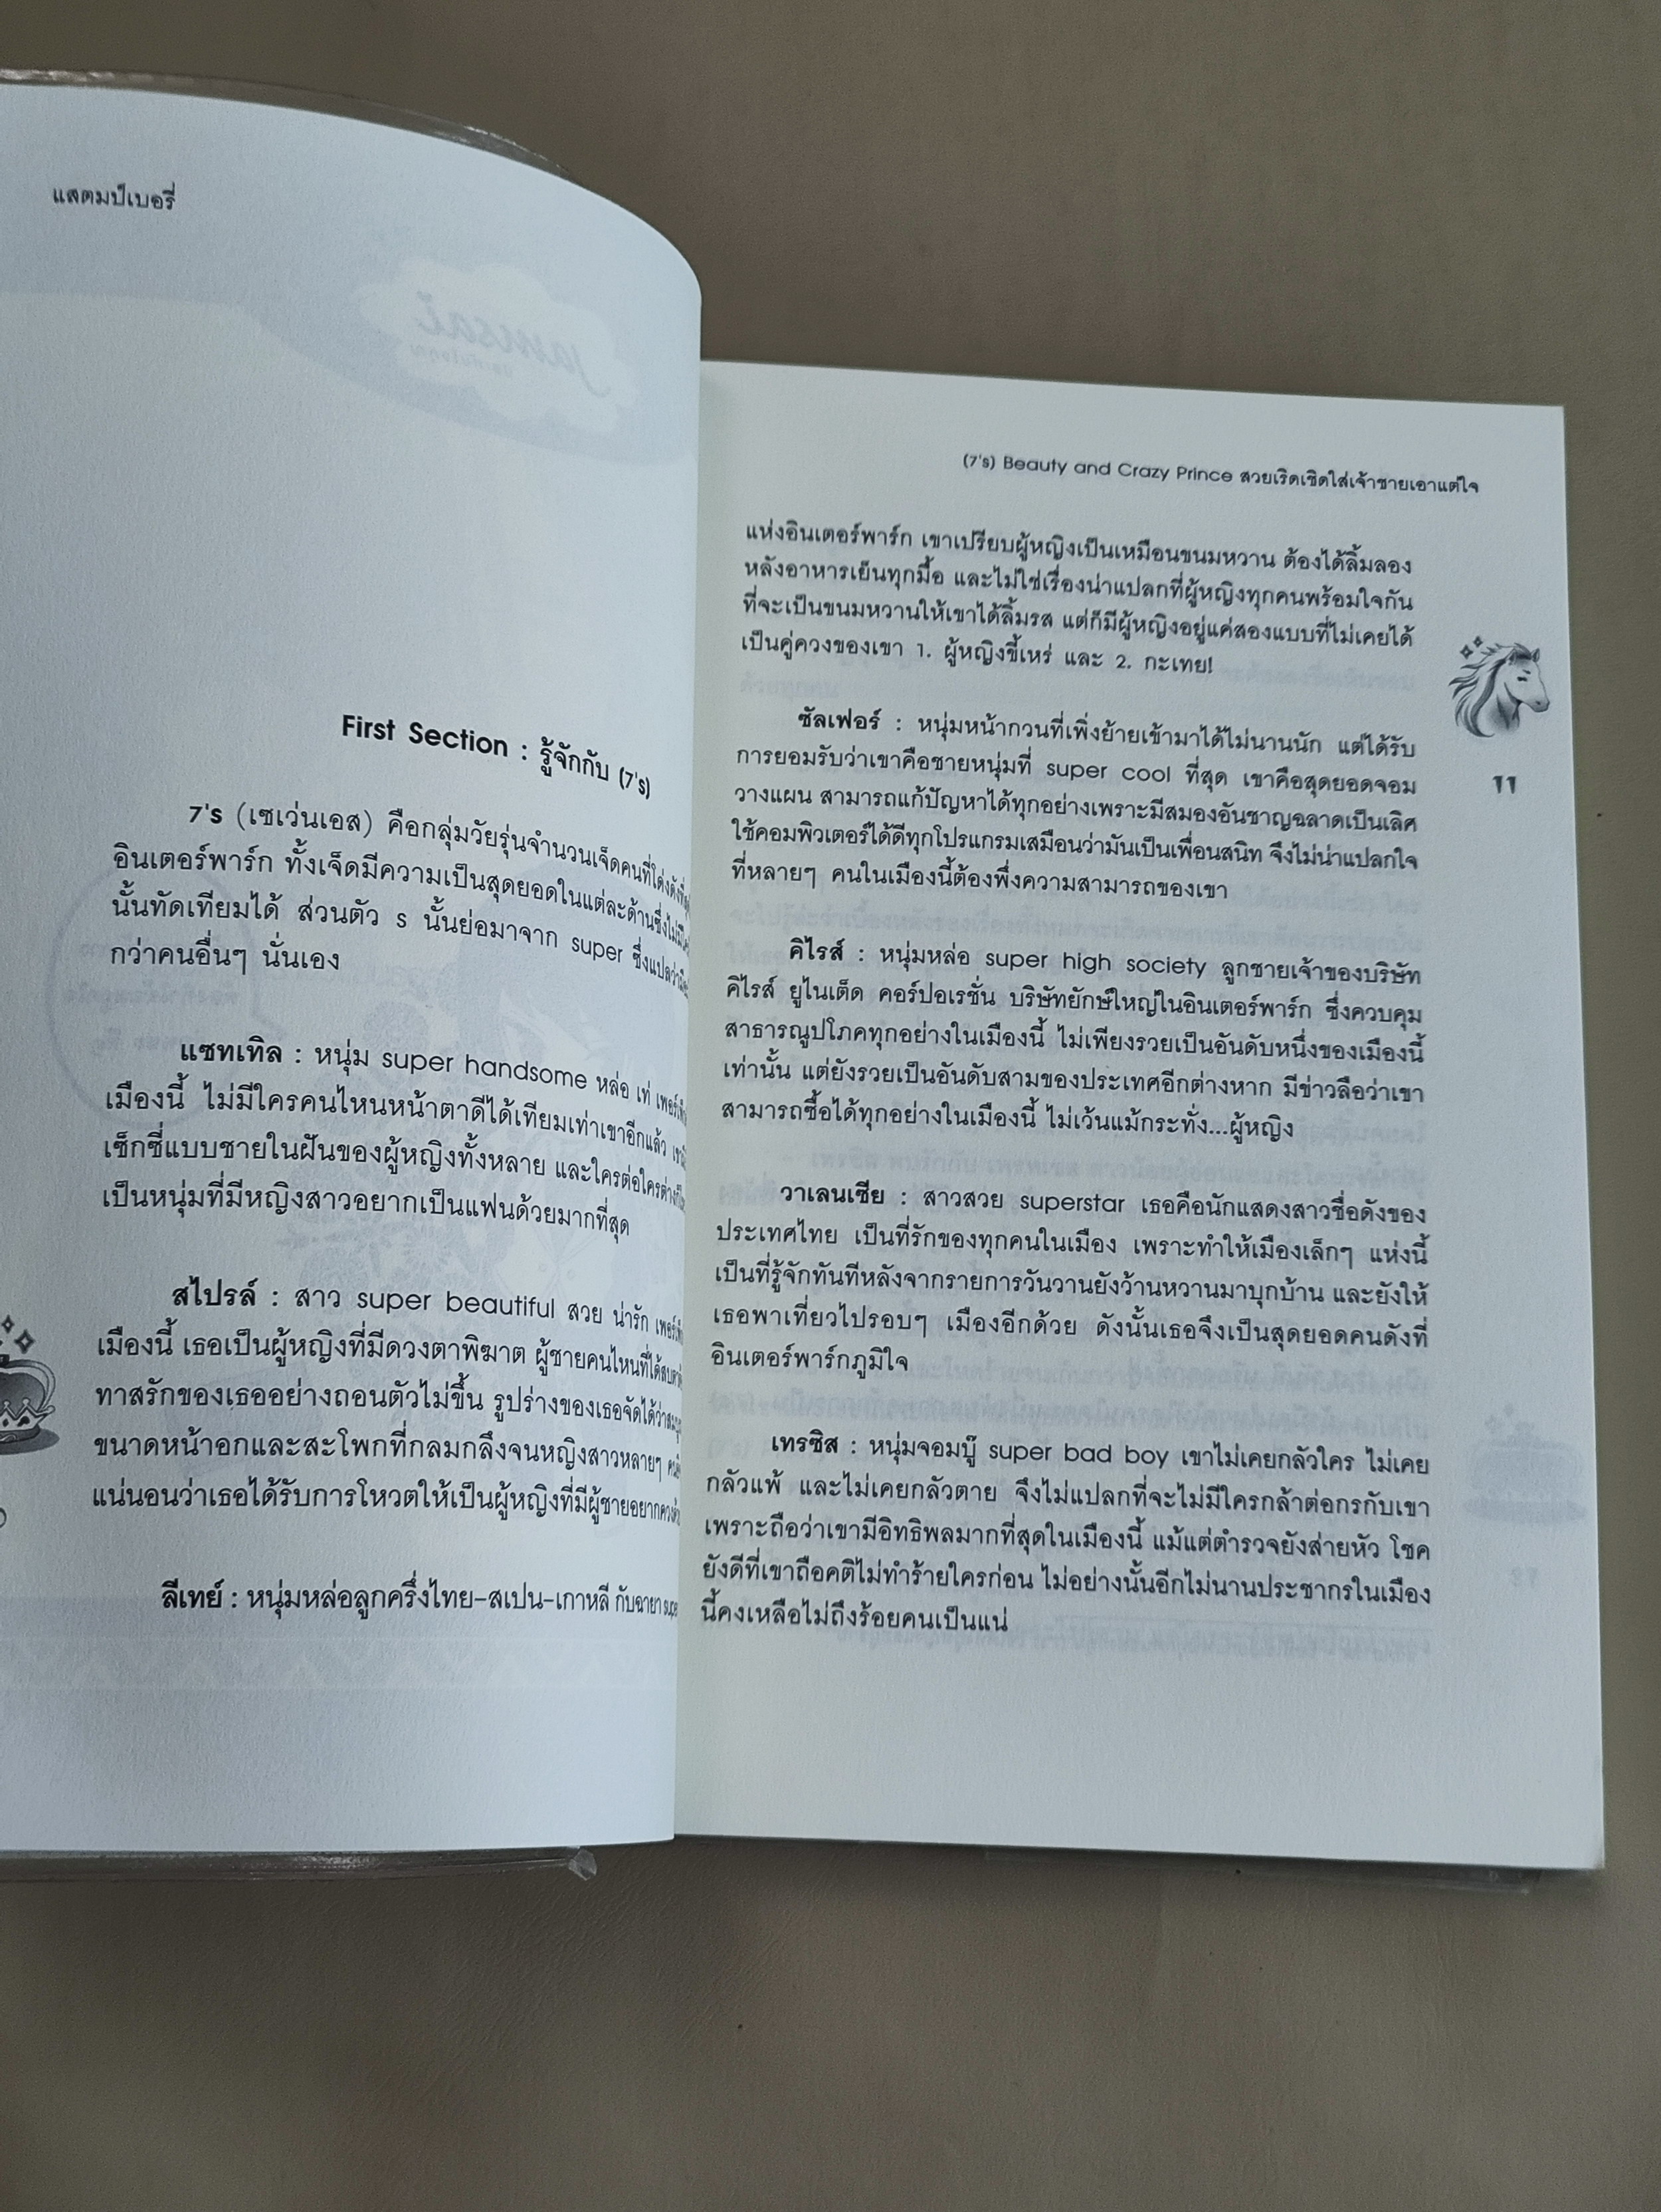 แสตมป์เบอรี่
First Section : รู้จักกับ (7's)
7's (เซเว่นเอส) คือกลุ่มวัยรุ่นจำนวนเจ็ดคนที่โด่งดังที่สุด
อินเตอร์พาร์ก ทั้งเจ็ดมีความเป็นสุดยอดในแต่ละด้านซึ่งไม่มี
นั้นทัดเทียมได้ ส่วนตัว s นั้นย่อมาจาก super ซึ่งแปลว่า
กว่าคนอื่นๆ นั่นเอง
แซทเทิล : หนุ่ม super handsome หล่อ เท่
เมืองนี้ ไม่มีใครคนไหนหน้าตาดีได้เทียมเท่าเขาอีกแล้ว
เซ็กซี่แบบชายในฝันของผู้หญิงทั้งหลาย และใครต่อใครต่าง
เป็นหนุ่มที่มีหญิงสาวอยากเป็นแฟนด้วยมากที่สุด
สไปรล์ : สาว super beautiful สวย น่ารัก
เมืองนี้ เธอเป็นผู้หญิงที่มีดวงตาพิฆาต ผู้ชายคนไหนที่ได้สบตา
ทาสรักของเธออย่างถอนตัวไม่ขึ้น รูปร่างของเธอจัดได้ว่า
ขนาดหน้าอกและสะโพกที่กลมกลึงจนหญิงสาวหลายๆ
แน่นอนว่าเธอได้รับการโหวตให้เป็นผู้หญิงที่มีผู้ชายอยากควง
ลีเทย์ : หนุ่มหล่อลูกครึ่งไทย-สเปน-เกาหลี กับฉายา
(7's) Beauty and Crazy Prince สวยเริดเชิดใส่เจ้าชายเอาแต่ใจ
แห่งอินเตอร์พาร์ก เขาเปรียบผู้หญิงเป็นเหมือนขนมหวาน ต้องได้ลิ้มลอง
หลังอาหารเย็นทุกมื้อ และไม่ใช่เรื่องน่าแปลกที่ผู้หญิงทุกคนพร้อมใจกัน
ที่จะเป็นขนมหวานให้เขาได้ลิ้มรส แต่ก็มีผู้หญิงอยู่แค่สองแบบที่ไม่เคยได้
เป็นคู่ควงของเขา 1. ผู้หญิงขี้เหร่ และ 2. กะเทย!
ซัลเฟอร์ : หนุ่มหน้ากวนที่เพิ่งย้ายเข้ามาได้ไม่นานนัก แต่ได้รับ
การยอมรับว่าเขาคือชายหนุ่มที่ super cool ที่สุด เขาคือสุดยอดจอม
วางแผน สามารถแก้ปัญหาได้ทุกอย่างเพราะมีสมองอันชาญฉลาดเป็นเลิศ
ใช้คอมพิวเตอร์ได้ดีทุกโปรแกรมเสมือนว่ามันเป็นเพื่อนสนิท จึงไม่น่าแปลกใจ
ที่หลายๆ คนในเมืองนี้ต้องพึ่งความสามารถของเขา
11
คิไรส์ : หนุ่มหล่อ super high society ลูกชายเจ้าของบริษัท
คิไรส์ ยูไนเต็ด คอร์ปอเรชั่น บริษัทยักษ์ใหญ่ในอินเตอร์พาร์ก ซึ่งควบคุม
สาธารณูปโภคทุกอย่างในเมืองนี้ ไม่เพียงรวยเป็นอันดับหนึ่งของเมืองนี้
เท่านั้น แต่ยังรวยเป็นอันดับสามของประเทศอีกต่างหาก มีข่าวลือว่าเขา
สามารถซื้อได้ทุกอย่างในเมืองนี้ ไม่เว้นแม้กระทั่ง...ผู้หญิง
วาเลนเซีย : สาวสวย superstar เธอคือนักแสดงสาวชื่อดังของ
ประเทศไทย เป็นที่รักของทุกคนในเมือง เพราะทำให้เมืองเล็กๆ แห่งนี้
เป็นที่รู้จักทันทีหลังจากรายการวันวานยังว้านหวานมาบุกบ้าน และยังให้
เธอพาเที่ยวไปรอบๆ เมืองอีกด้วย ดังนั้นเธอจึงเป็นสุดยอดคนดังที่
อินเตอร์พาร์กภูมิใจ
เทรซิส : หนุ่มจอมบู๊ super bad boy เขาไม่เคยกลัวใคร ไม่เคย
กลัวแพ้ และไม่เคยกลัวตาย จึงไม่แปลกที่จะไม่มีใครกล้าต่อกรกับเขา
เพราะถือว่าเขามีอิทธิพลมากที่สุดในเมืองนี้ แม้แต่ตำรวจยังส่ายหัว โชค
ยังดีที่เขาถือคติไม่ทำร้ายใครก่อน ไม่อย่างนั้นอีกไม่นานประชากรในเมือง
นี้คงเหลือไม่ถึงร้อยคนเป็นแน่